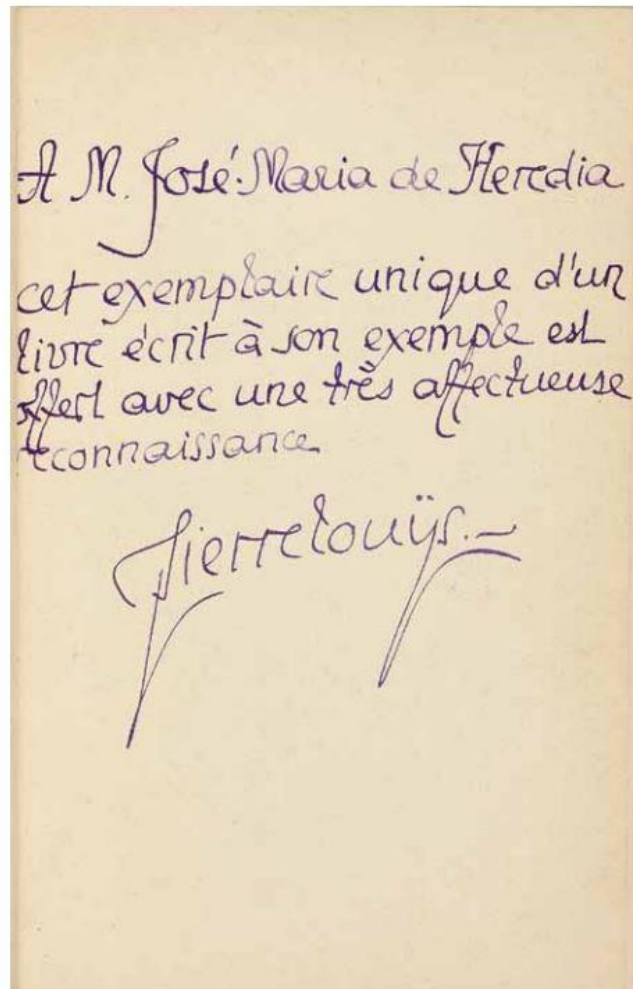 A M. José-Maria de Heredia
cet exemplaire unique d'un
livre écrit à son exemple est
offert avec une très affectueuse
reconnaissance
Pierre Louÿs.